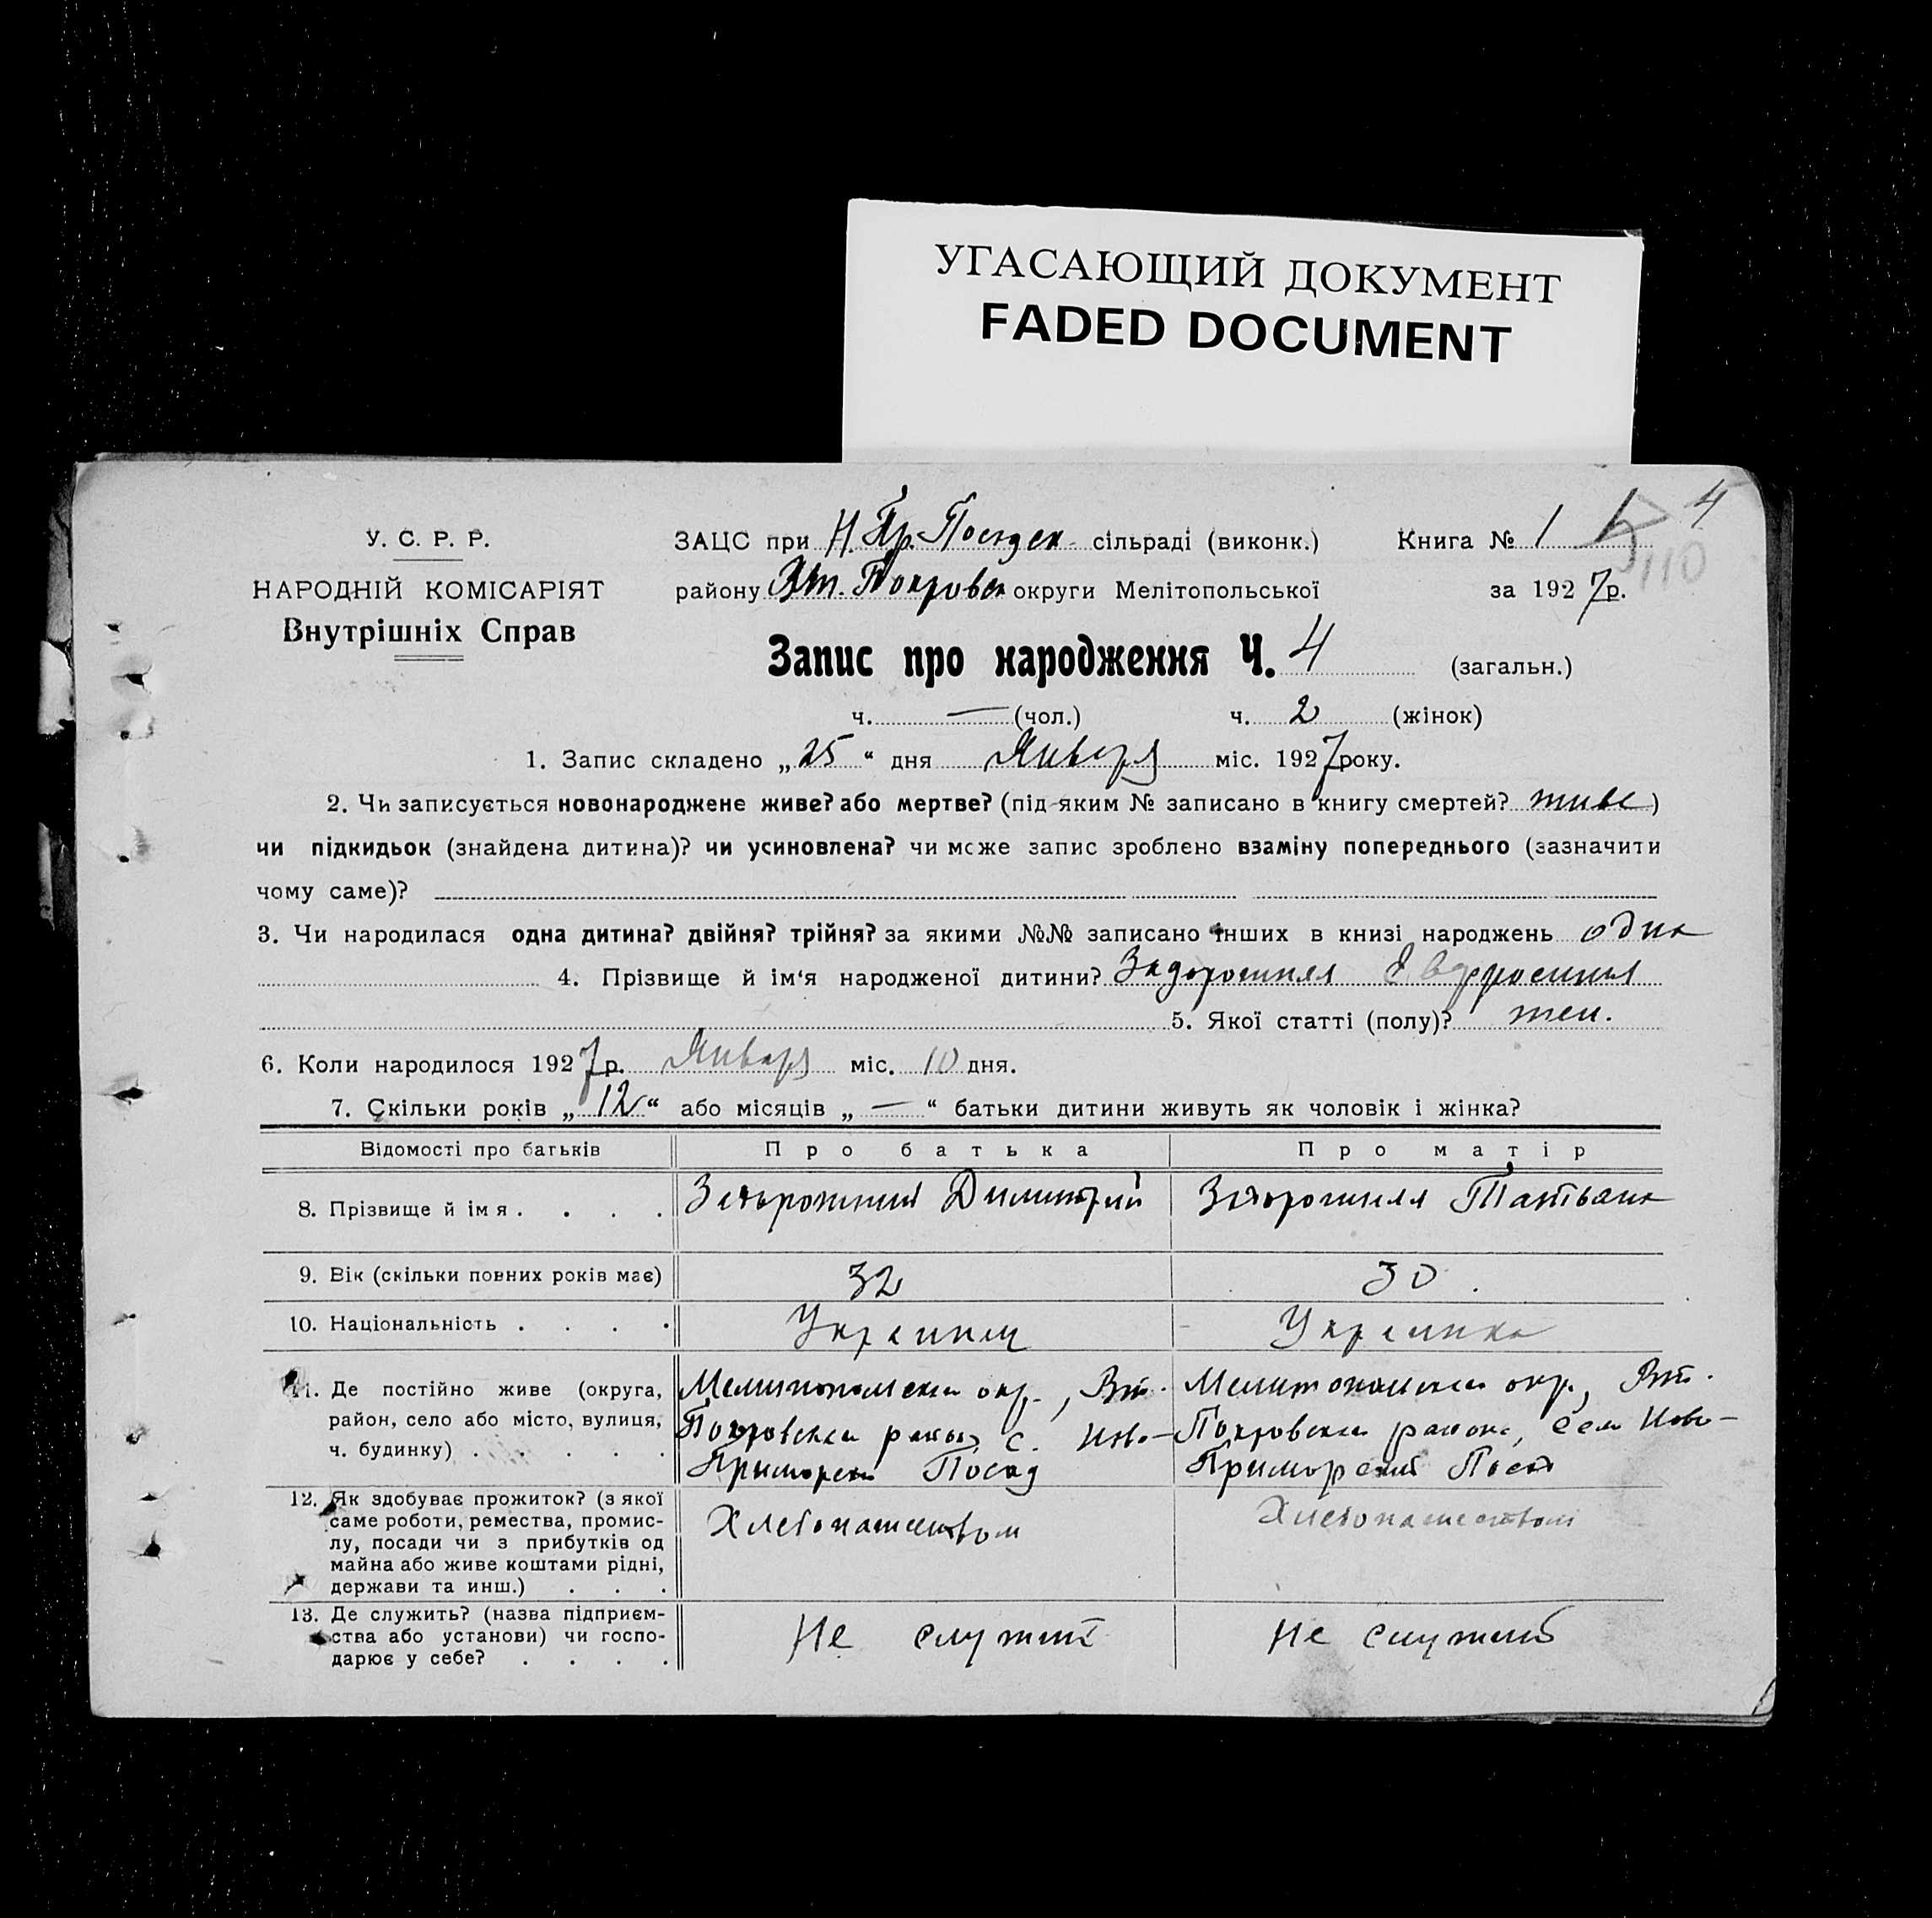 УГАСАЮЩИЙ ДОКУМЕНТ
FADED DOCUMENT
У. С. Р. Р.
НАРОДНІЙ КОМІСАРІЯТ
Внутрішніх Справ
ЗАЦС при Н. Пр. Посадск. сільраді (виконк.) Книга № 1 4
110
району Вт. Покровск округи Мелітопольської за 1927р.
Запис про народження Ч. 4 (загальн.)
ч. — (чол.) ч. 2 (жінок)
1. Запис складено „25“ дня Января міс. 1927 року.
2. Чи записується новонароджене живе? або мертве? (під яким № записано в книгу смертей? живе)
чи підкидьок (знайдена дитина)? чи усиновлена? чи може запис зроблено взаміну попереднього (зазначити
чому саме)?
3. Чи народилася одна дитина? двійня? трійня? за якими №№ записано інших в книзі народжень одна
4. Прізвище й ім‘я народженої дитини? Задорожняя Евфросиния
5. Якої статті (полу)? жен.
6. Коли народилося 1927р. Января міс. 10 дня.
7. Скільки років „12“ або місяців „—“ батьки дитини живуть як чоловік і жінка?
Відомості про батьків Про батька Про матір
8. Прізвище й імя . . . . Задорожний Димитрий Задорожняя Татьана
9. Вік (скільки повних років має) 32 30.
10. Національність . . . . Украинец Украинка
11. Де постійно живе (округа, район, село або місто, вулиця, ч. будинку) . . . .
Мелитопольск окр., Вт. Покровск района, с. Ново-Приморск Посад
Мелитопольск окр., Вт. Покровск района, село Ново-Приморский Посад
12. Як здобуває прожиток? (з якої
саме роботи, ремества, промис-
лу, посади чи з прибутків од
майна або живе коштами рідні,
держави та инш.) . . .
Хлебопашеством Хлебопашеством
13. Де служить? (назва підприєм-
ства або установи) чи госпо-
дарює у себе? . . . .
Не служит Не служит